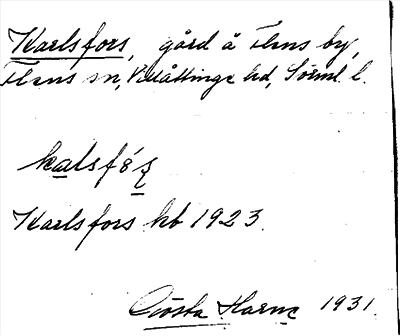 Karlsfors, gård å Flens by,
Flens sn, Villåttinge hd, Sörml. l.
kalsfó̱ṣ
Karlsfors hb 1923.
Gösta Harne 1931.